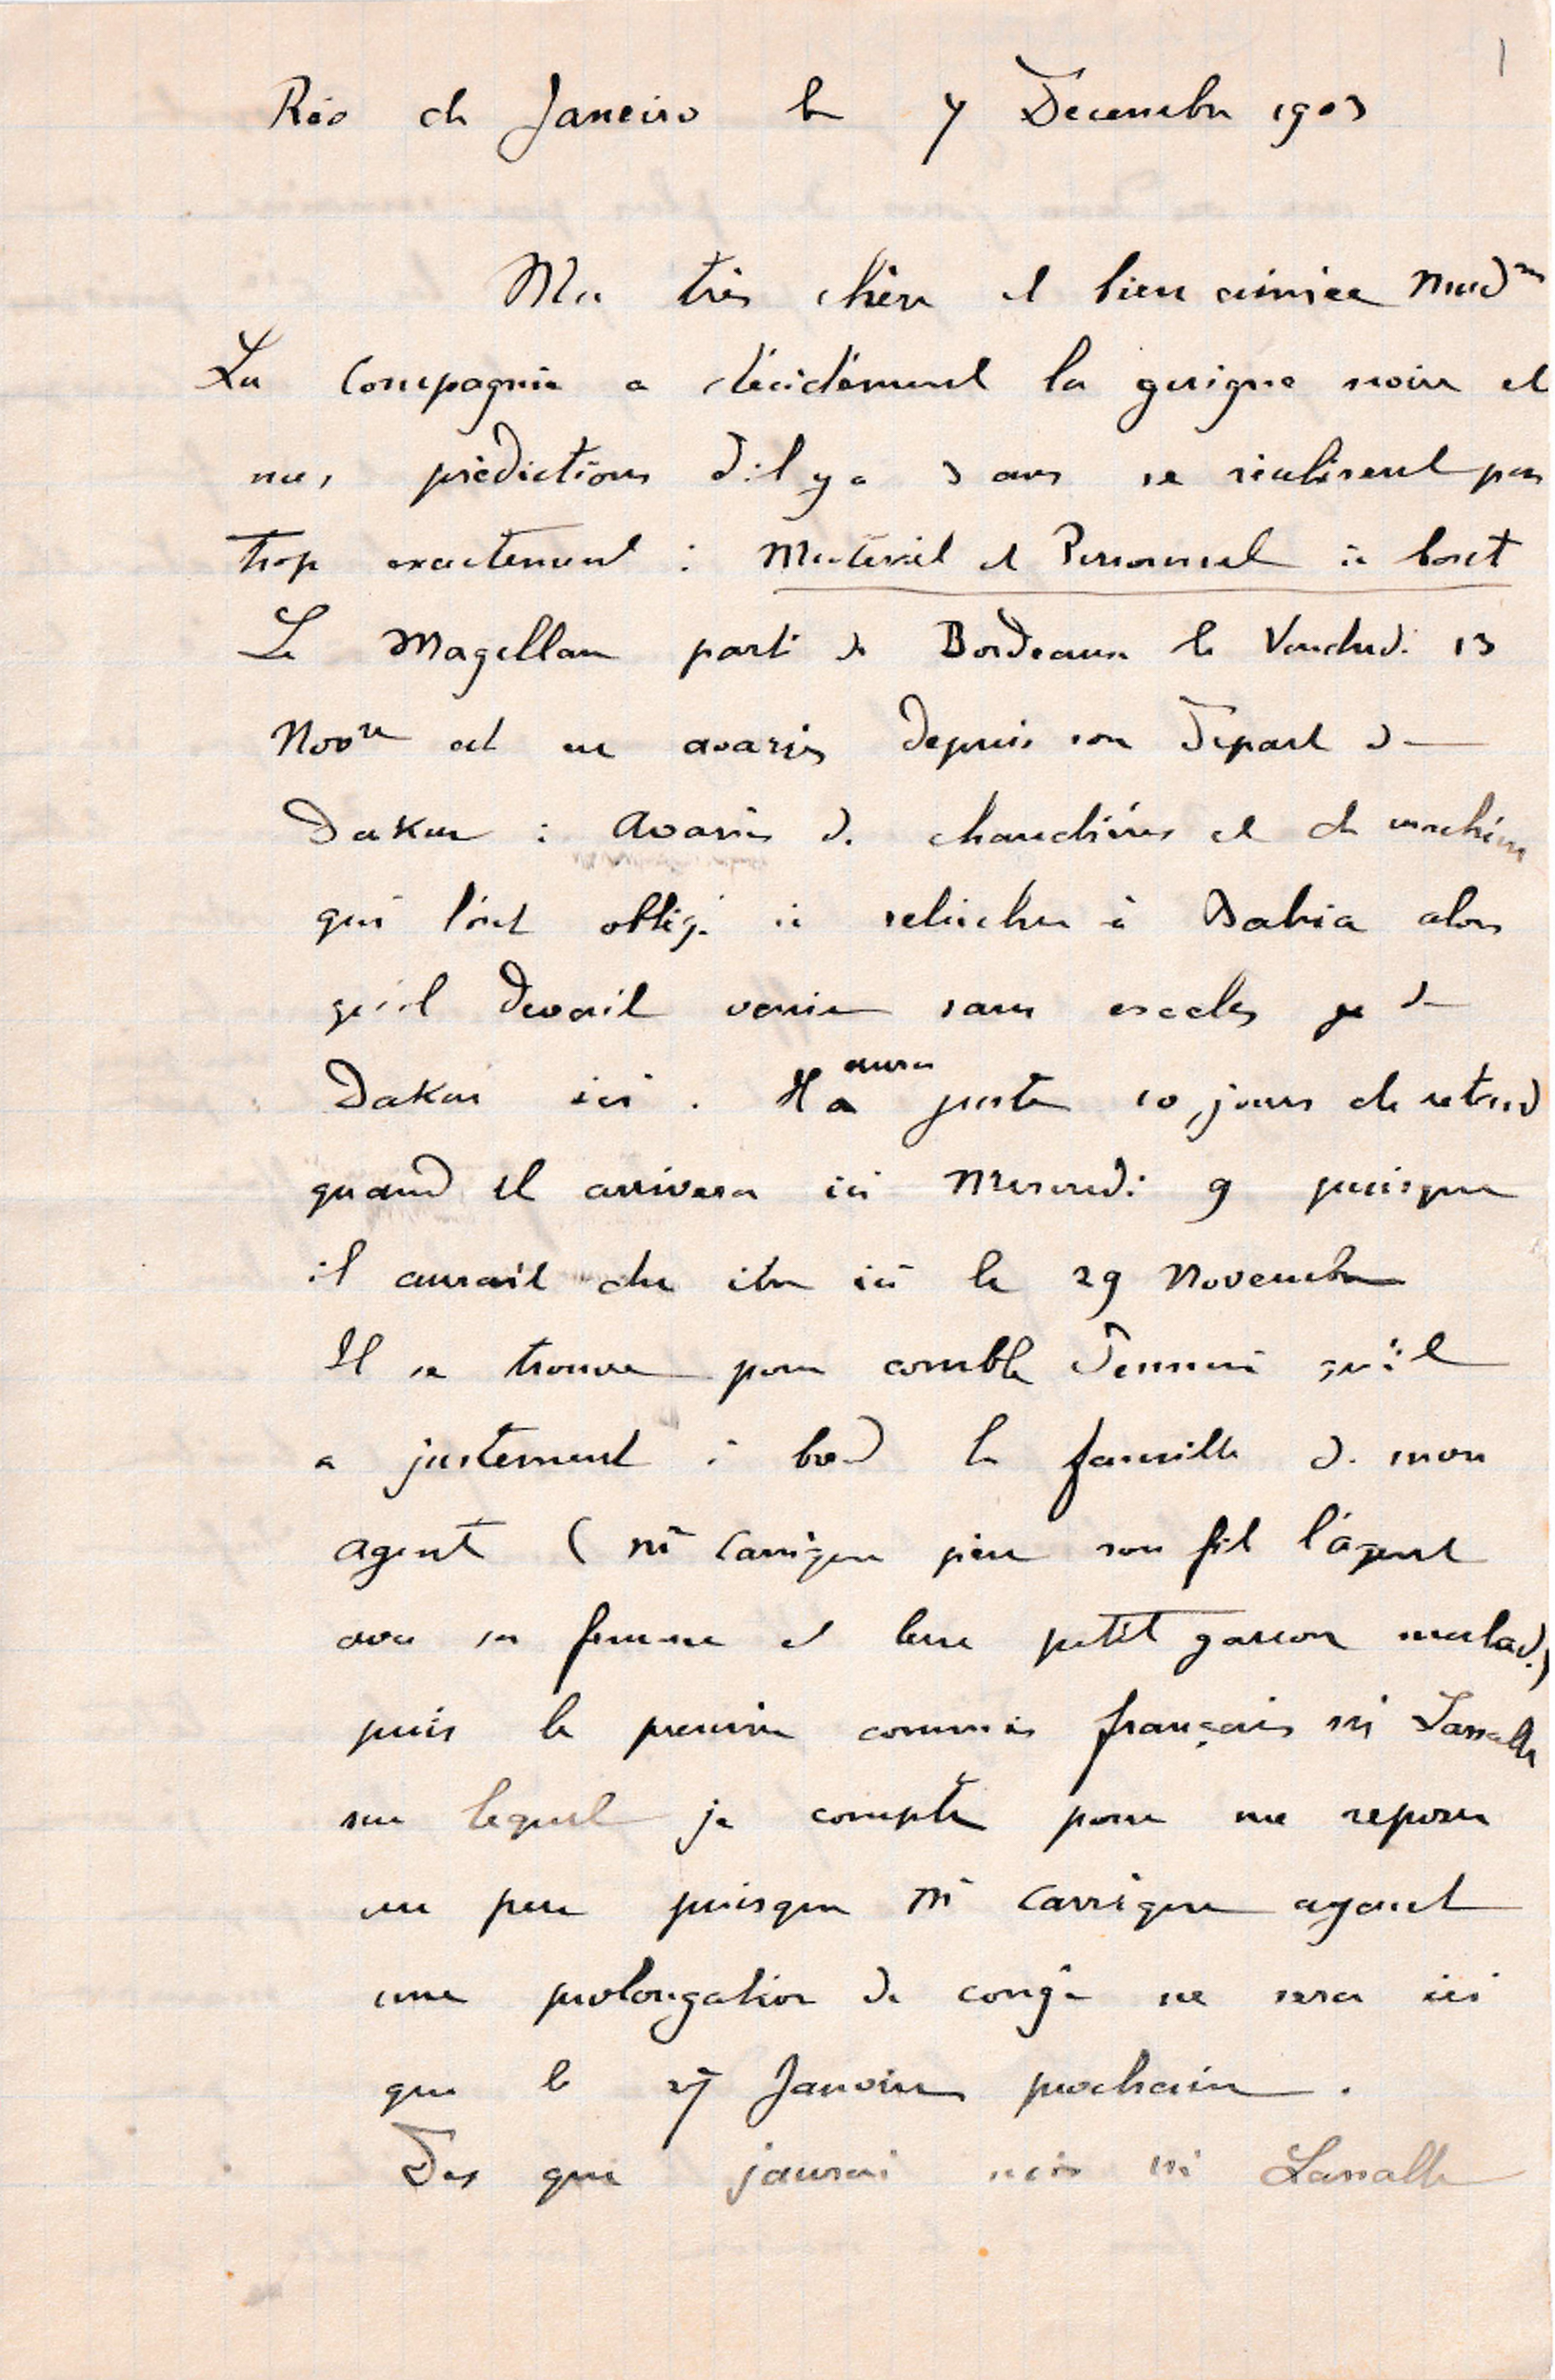 1
Rio de Janeiro le 7 Decembre 1903
Ma très chère et bien aimée
La Compagnie a décidément la guigne noire et
mes prédictions d'il y a 3 ans se réalisent pas
trop exactement : Matériel et Personnel à bout
Le Magellan parti de Bordeaux le Vendredi 13
Novre est en avaries depuis son départ de
Dakar : Avaries de chaudières et de machine
qui l'ont obligé à relâcher à Bahia alors
qu'il devait venir sans escales de
Dakar ici . Il aura juste 10 jours de retard
quand il arrivera ici Mercredi 9 puisque
il aurait du être ici le 29 Novembre
Il se trouve pour comble d'ennui qu'il
a justement à bord la famille de mon
agent ( Mr Carrigue père son fil l'agent
avec sa femme et leur petit garcon malade)
puis le premier commis français Mr Lassalle
sur lequel je compte pour me reposer
un peu puisque Mr Carrigue ayant
une prolongation de congé ne sera ici
que le 27 Janvier prochain .
Des que jaurai mis Mr Lassalle